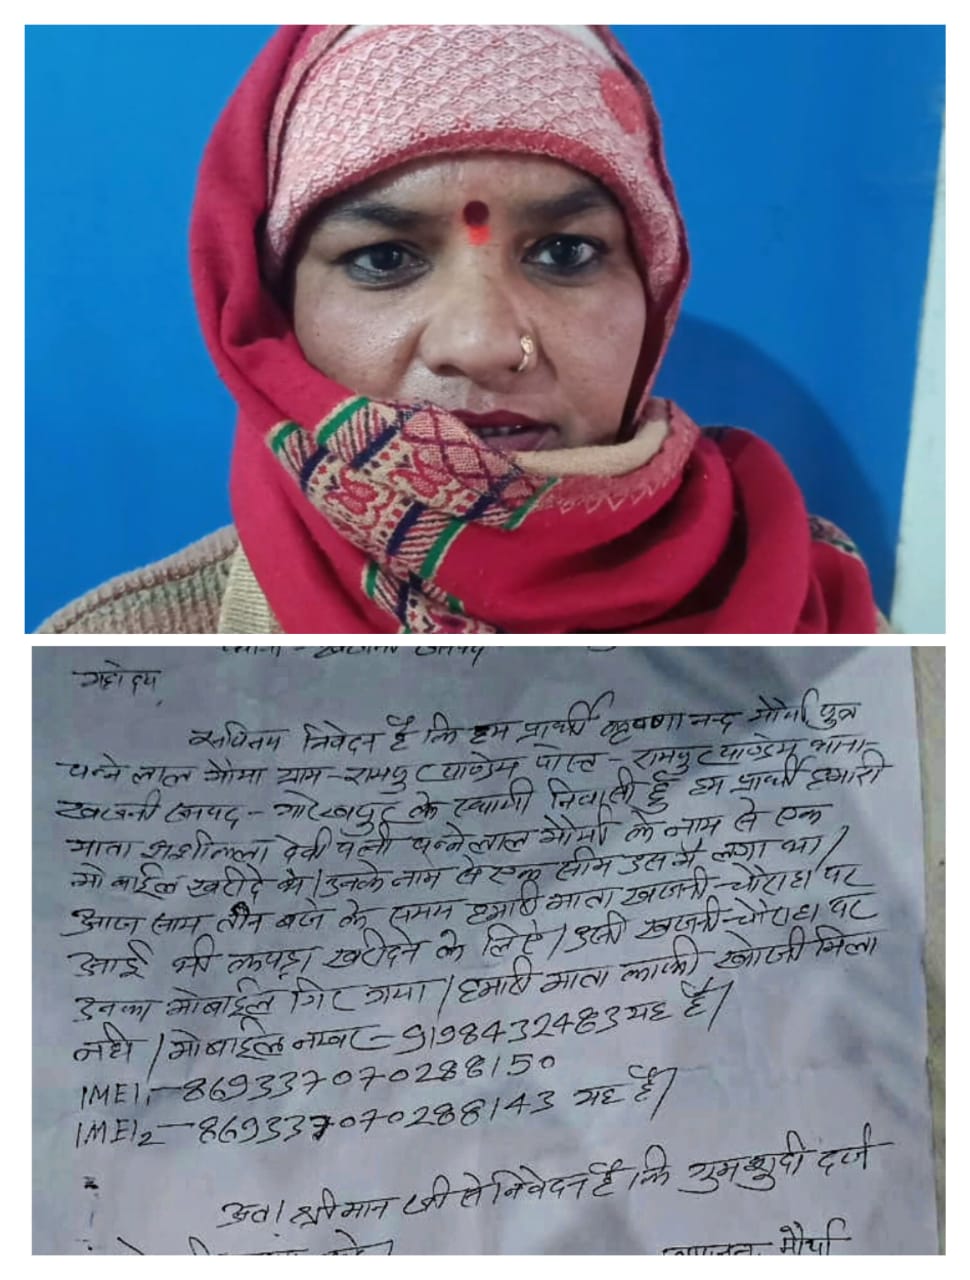 थाना - खजनी जनपद
महोदय
सविनय निवेदन है कि हम प्रार्थी कृष्णा नन्द मौर्या पुत्र
पन्ने लाल मौर्या ग्राम - रामपुर पाण्डेय पोस्ट - रामपुर पाण्डेय थाना
खजनी जनपद - गोरखपुर के स्थायी निवासी हूँ हम प्रार्थी हमारी
माता देवी पत्नी पन्ने लाल मौर्या के नाम से एक
मोबाईल खरीदे थे। उनके नाम से एक सीम उसमें लगा था।
आज साम तीन बजे के समय हमारी माता खजनी चौराहा पर
आई थी कपड़ा खरीदने के लिए। उसी खजनी चौराहा पर
उनका मोबाईल गिर गया। हमारी माता काफी खोजी मिला
नही। मोबाईल नम्बर - 9198432483 यह है।
IMEI1 - 869337070288150
IMEI2 - 869337070288143 यह है।
अतः श्रीमान जी से निवेदन है कि गुमशुदी दर्ज
मौर्या